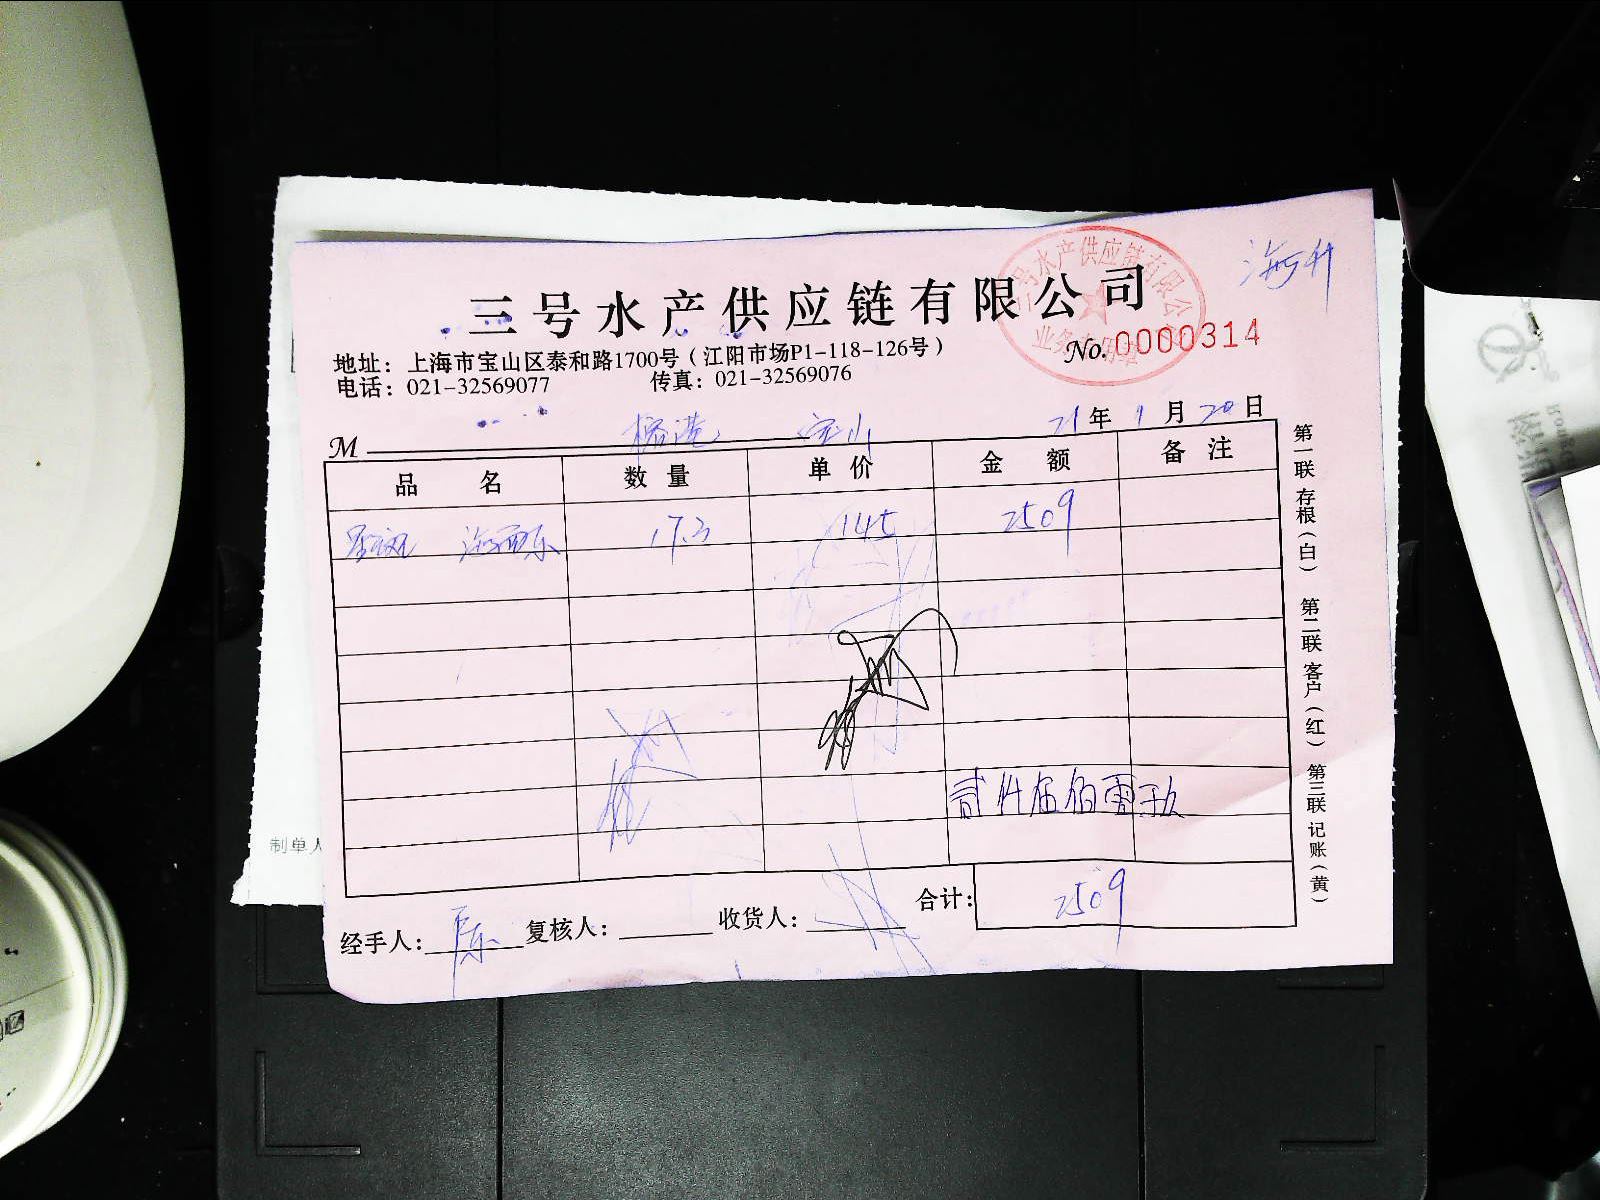 三号水产供应链有限公司
三号水产供应链有限公司
业务专用章
No.0000314
地址：上海市宝山区泰和路1700号（江阳市场P1-118-126号）
电话：021-32569077 传真：021-32569076
宝山 21年 1月20日
M
品名 数量 单价 金额 备注
17.3 145 2509
贰仟伍佰零玖
合计：2509
经手人：陈 复核人： 收货人：
第一联 存根（白） 第二联 客户（红） 第三联 记账（黄）
制单人